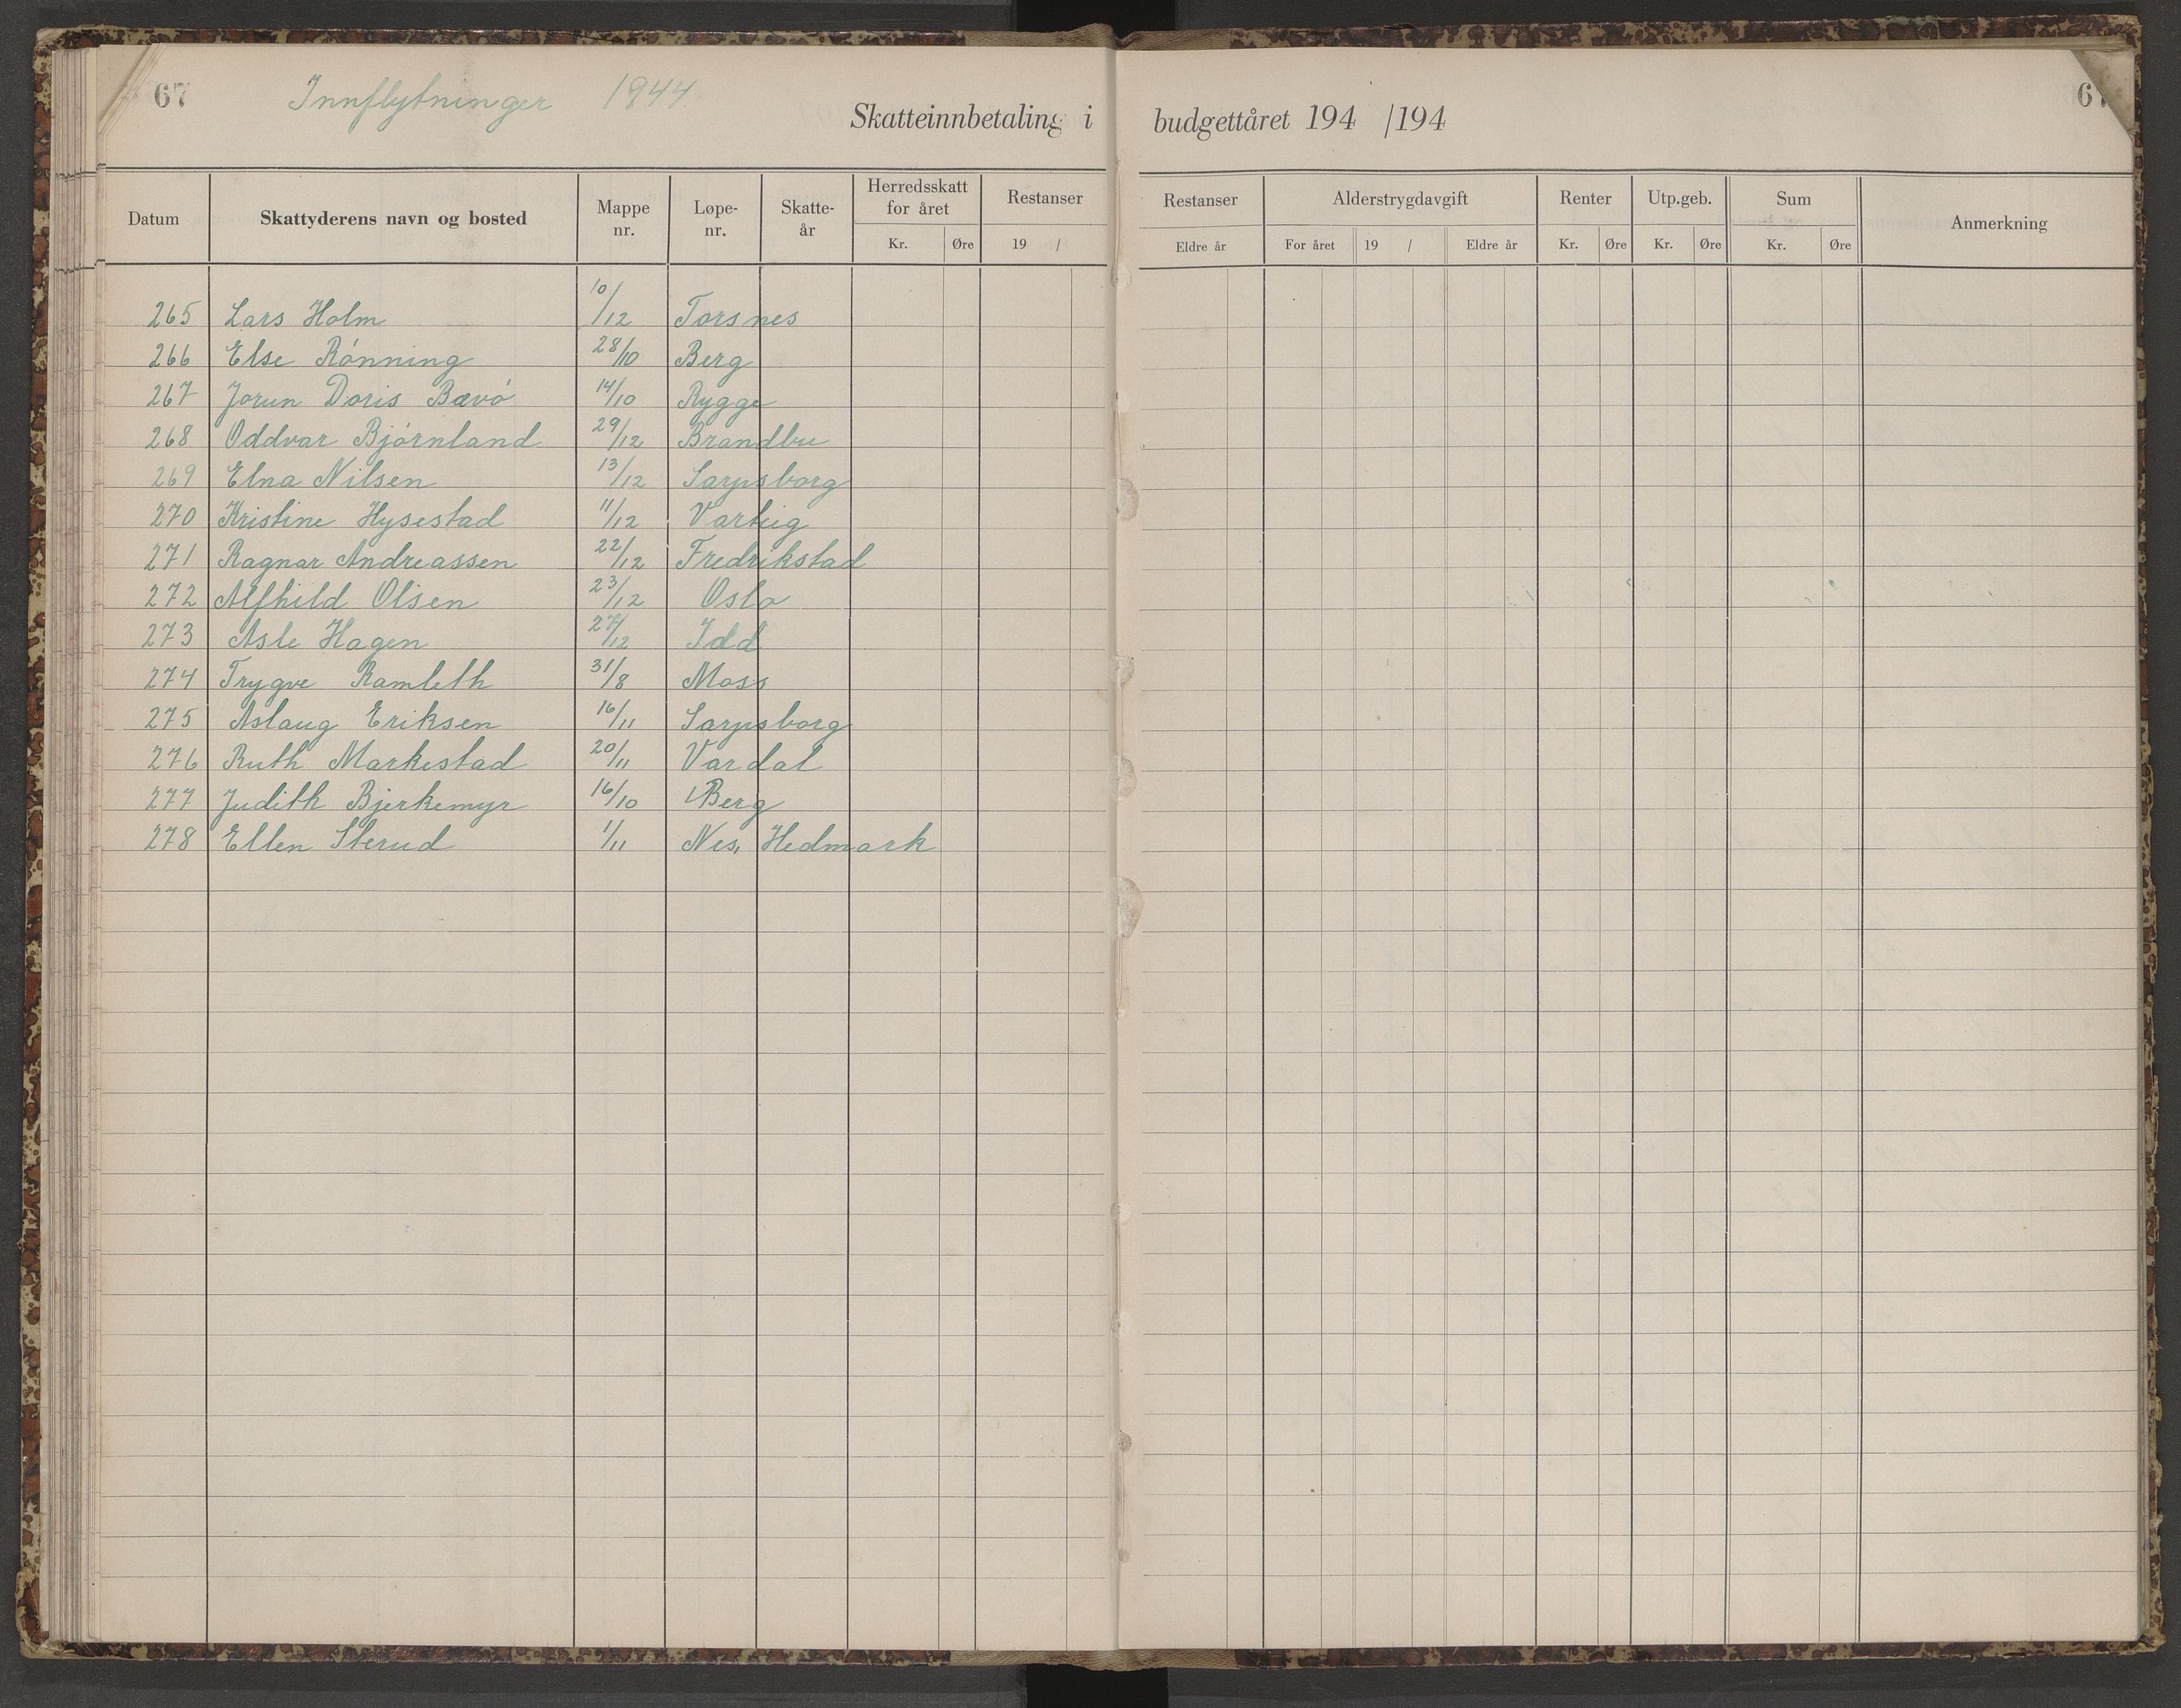 67 Innflytninger 1944
Skatteinnbetaling i budgettåret 194 /194
Datum Skattyderens navn og bosted Mappe nr. Løpe-nr. Skatte-år Herredsskatt for året Kr. Øre Restanser 19 / Restanser Eldre år Alderstrygdavgift For året 19 / Eldre år Renter Kr. Øre Utp.geb. Kr. Øre Sum Kr. Øre Anmerkning
265 Lars Holm 10/12 Torsnes
266 Else Rónning 28/10 Berg
267 Jorun Doris Bævó 14/10 Rygge
268 Oddvar Bjórnland 29/12 Brandbu
269 Elna Nilsen 13/12 Sarpsborg
270 Kristine Hysestad 11/12 Varteig
271 Ragnar Andreassen 22/12 Fredrikstad
272 Alfhild Olsen 23/12 Oslo
273 Asle Hagen 27/12 Idd
274 Trygve Ramleth 31/8 Moss
275 Aslaug Eriksen 16/11 Sarpsborg
276 Ruth Markestad 20/11 Vardal
277 Judith Bjerkemyr 16/10 Berg
278 Ellen Sterud 1/11 Nes, Hedmark